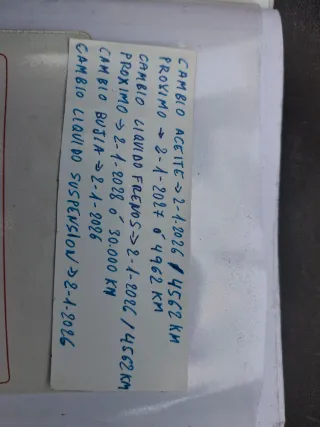 CAMBIO ACEITE → 2-1-2026 / 4562 KM
PROXIMO → 2-1-2027 ó 4962 KM
CAMBIO LIQUIDO FRENOS → 2-1-2026 / 4562 KM
PROXIMO → 2-1-2028 ó 30.000 KM
CAMBIO BUJIA → 2-1-2026
CAMBIO LIQUIDO SUSPENSION → 2-1-2026